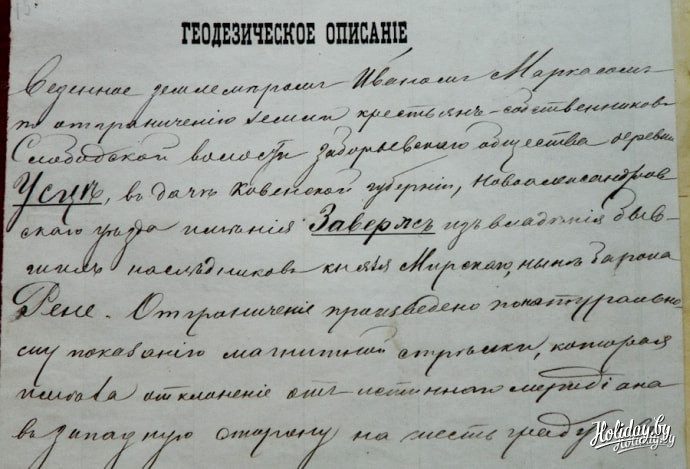 ГЕОДЕЗИЧЕСКОЕ ОПИСАНІЕ
Веденное землемѣромъ Иваномъ
по отграниченію земли крестьянъ-собственниковъ
Слободской волости Заборьевскаго общества деревни
Усцъ, въ дачѣ Ковенской губерніи, Новоалександров-
скаго уѣзда имѣнія Заверясъ изъ владѣнія быв-
шихъ наслѣдниковъ князя Мирскаго, нынѣ барона
Рене. Отграниченіе произведено по натурально-
му показанію магнитной стрѣлки, которая
имѣла отклоненіе отъ истиннаго меридіана
въ западную сторону на шесть граду
Holiday.by